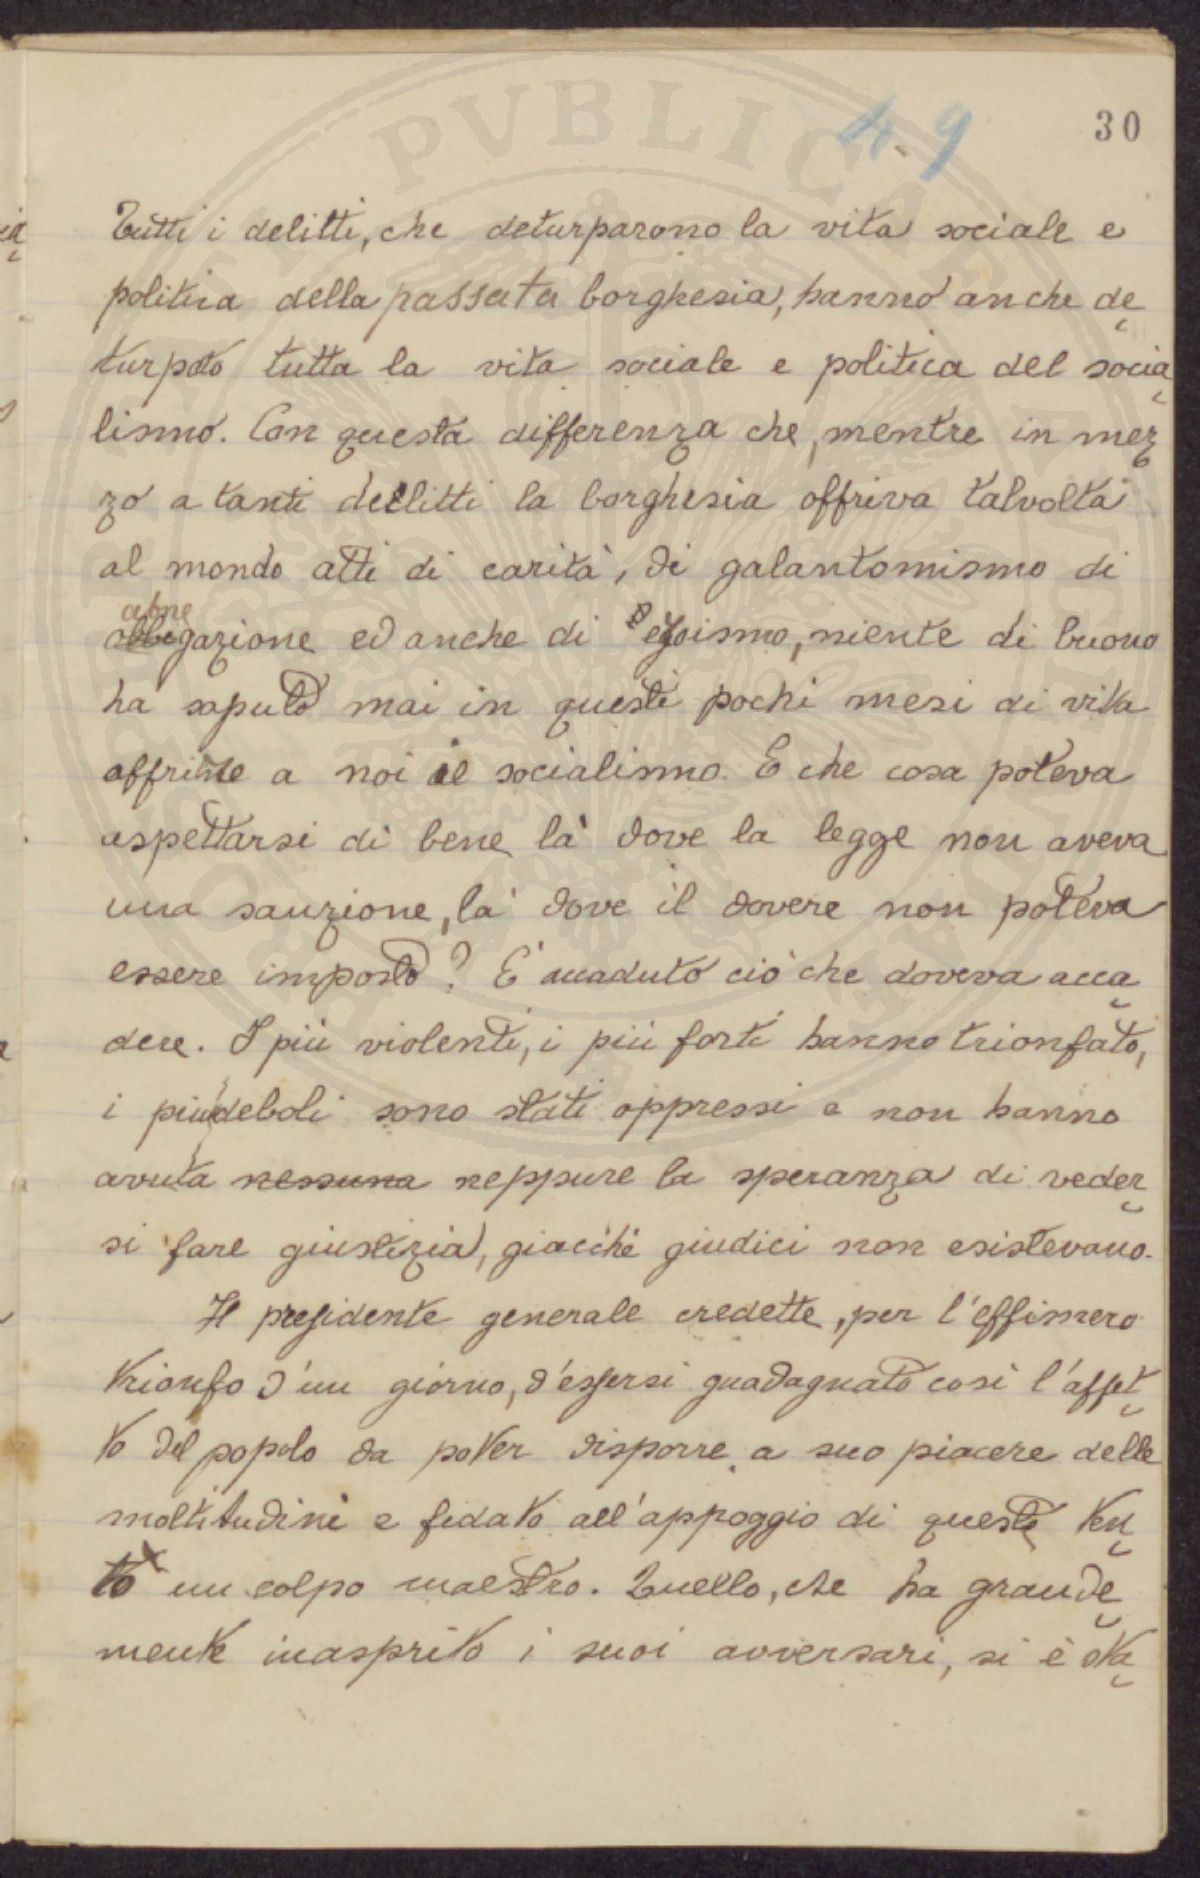 49
30
Tutti i delitti, che deturparono la vita sociale e
politica della passata borghesia, hanno anche de
turpato tutta la vita sociale e politica del socia
lismo. Con questa differenza che, mentre in mez
zo a tanti delitti la borghesia offriva talvolta
al mondo atti di carità, di galantomismo di
abnegazione ed anche di egoismo, niente di buono
ha saputo mai in questi pochi mesi di vita
offrire a noi il socialismo. E che cosa poteva
aspettarsi di bene là dove la legge non aveva
una sanzione, là dove il dovere non poteva
essere imposto? E' accaduto ciò che doveva acca
dere. I più violenti, i più forti hanno trionfato,
i più deboli sono stati oppressi e non hanno
avuta nessuna neppure la speranza di veder
si fare giustizia, giacchè giudici non esistevano.
Il presidente generale credette, per l'effimero
trionfo d'un giorno, d'essersi guadagnato così l'affet
to del popolo da poter disporre a suo piacere delle
moltitudini e fidato all'appoggio di queste ten
tò un colpo maestro. Quello, che ha grande
mente inasprito i suoi avversari, si è sta